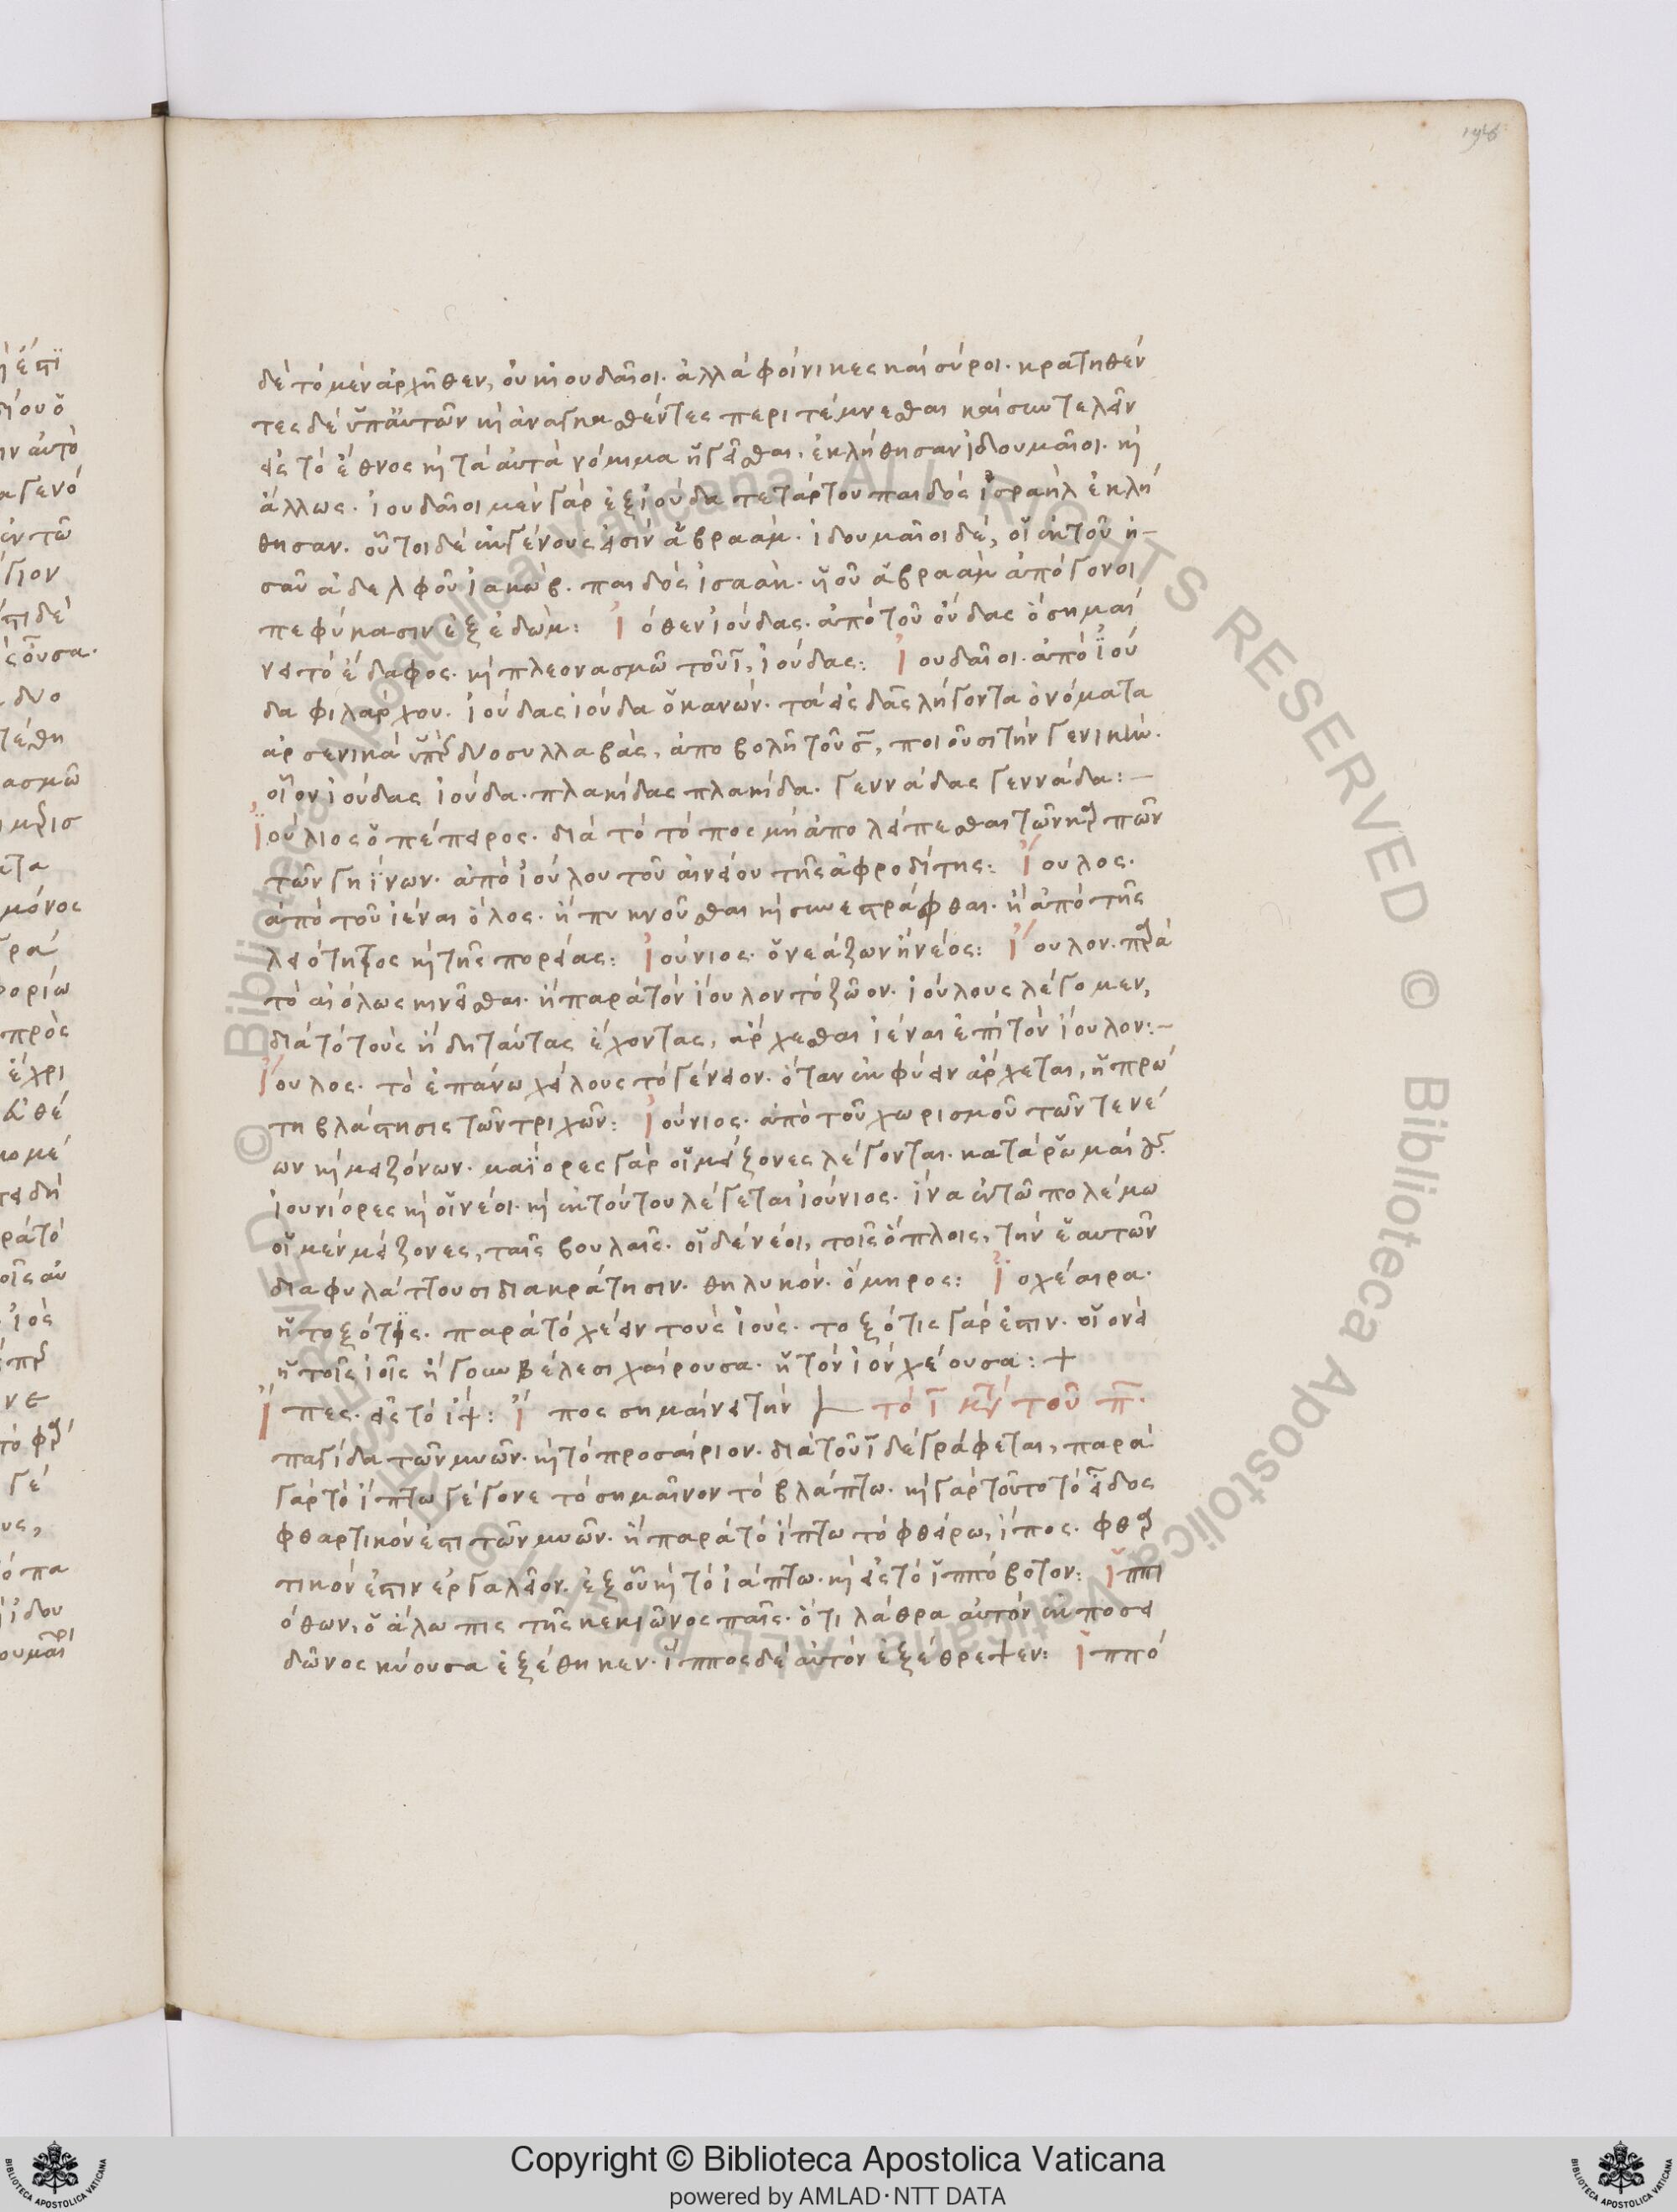 δὲ τὸ μὲν ἀρχῆθεν, οὐκ ἰουδαῖοι. ἀλλὰ φοίνικες καὶ σύροι. κρατηθέν
τες δὲ ὑπ' αὐτῶν κὶ ἀναγκασθέντες περιτέμνεσθαι καὶ συντελεῖν
εἰς τὸ ἔθνος κὶ τὰ αὐτὰ νόμιμα ἡγεῖσθαι, ἐκλήθησαν ἰδουμαῖοι. κὶ
ἄλλως. ἰουδαῖοι μὲν γὰρ ἐξ ἰούδα τετάρτου παιδὸς ἰσραὴλ ἐκλή
θησαν. οὗτοι δὲ ἐκ γένους εἰσὶν ἀβραάμ. ἰδουμαῖοι δέ, οἳ ἐκ τοῦ ἠ-
σαῦ ἀδελφοῦ ἰακώβ. παιδὸς ἰσαάκ. οὗ ἀβραὰμ ἀπόγονοι
πεφύκασιν ἐξ ἐδώμ: Ἰόθεν ἰούδας. ἀπὸ τοῦ οὖδας ὃ σημαί
νει τὸ ἔδαφος. κὶ πλεονασμῶ τοῦ ῑ, ἰούδας: Ἰουδαῖοι. ἀπὸ ἰού
δα φιλάρχου. ἰούδας ἰούδα ὁ κανών. τὰ εἰς δας λήγοντα ὀνόματα
ἀρσενικὰ ὑπὲρ δύο συλλαβάς, ἀποβολῆ τοῦ σ̄, ποιοῦσι τὴν γενικήν.
οἷον ἰούδας ἰούδα. πλακίδας πλακίδα. γεννάδας γεννάδα:—
Ἰούλιος ὁ πέπειρος. διὰ τὸ τόπος μὴ ἀπολείπεσθαι τῶν καρπῶν
τῶν γηΐνων. ἀπὸ ἰούλου τοῦ αἰνείου τῆς ἀφροδίτης: Ἴουλος.
ἀπὸ τοῦ ἰέναι ὅλος. ἢ πυκνοῦσθαι κὶ συνεστράφθαι. ἢ ἀπὸ τῆς
λειότητος κὶ τῆς πορείας: Ἰούνιος. ὁ νεάζων ἢ νέος: Ἴουλον. παρὰ
τὸ αἰόλως κινεῖσθαι. ἢ παρὰ τὸν ἴουλον τὸ ζῶον. ἰούλους λέγομεν,
διὰ τὸ τοὺς ἤδη ταύτας ἔχοντας, ἄρχεσθαι ἰέναι ἐπὶ τὸν ἴουλον:—
Ἴουλος. τὸ ἐπάνω χείλους τὸ γένειον. ὅταν ἐκφύειν ἄρχεται, ἡ πρώ
τη βλάστησις τῶν τριχῶν: Ἰούνιος. ἀπὸ τοῦ χωρισμοῦ τῶν τε νέ
ων κὶ μειζόνων. μαΐορες γὰρ οἱ μείζονες λέγονται. κατὰ ῥωμαίους
ἰουνιόρες κὶ οἱ νέοι. κὶ ἐκ τούτου λέγεται ἰούνιος. ἵνα ἐν τῶ πολέμω
οἱ μὲν μείζονες, ταῖς βουλαῖς. οἱ δὲ νέοι, τοῖς ὅπλοις, τὴν ἑαυτῶν
διαφυλάττουσι διακράτησιν. θηλυκόν. ὅμηρος: Ἰοχέαιρα.
ἡ τοξότις. παρὰ τὸ χέειν τοὺς ἰούς. τοξότις γάρ ἐστιν. οἱονεὶ
ἡ τοῖς ἰοῖς ἤγουν βέλεσι χαίρουσα. ἡ τὸν ἰὸν χέουσα: +
Ἴπες. εἰς τὸ ἴψ: Ἴπος σημαίνει τὴν τὸ ῑ μετὰ τοῦ π̄.
παγίδα τῶν μυῶν. κὶ τὸ προσαίριον. διὰ τοῦ ῑ δὲ γράφεται, παρὰ
γὰρ τὸ ἴπτω γέγονε τὸ σημαῖνον τὸ βλάπτω. κὶ γὰρ τοῦτο τὸ εἶδος
φθαρτικὸν ἐστι τῶν μυῶν. ἢ παρὰ τὸ ἴπτω τὸ φθείρω, ἴπος. φθαρ
τικόν ἐστιν ἐργαλεῖον. ἐξ οὗ κὶ τὸ ἰάπτω. κὶ εἰς τὸ ἱππόβοτον: Ἱππι
όθων, ὁ ἀλώπις τῆς κεκιῶνος παῖς. ὅτι λάθρα αὐτὸν ἐκ ποσει
δῶνος κύουσα ἐξέθηκεν. ἵππος δὲ αὐτὸν ἐξέθρεψεν: Ἱππό
Copyright © Biblioteca Apostolica Vaticana
powered by AMLAD·NTT DATA
© Biblioteca Apostolica Vaticana ALL RIGHTS RESERVED